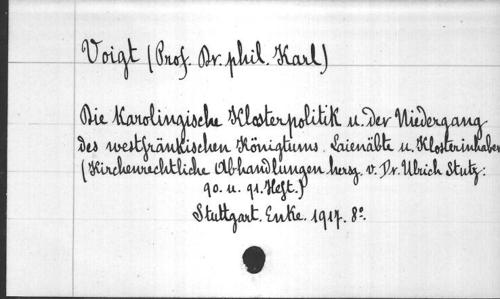 Voigt (Prof. Dr. phil. Karl)
Die Karolingische Klosterpolitik u. der Niedergang
des westfränkischen Königtums. Laienäbte u. Klosterinhaber
(Kirchenrechtliche Abhandlungen hersg. v. Dr. Ulrich Stutz:
90. u. 91. Heft.)
Stuttgart. Enke. 1917. 8º.